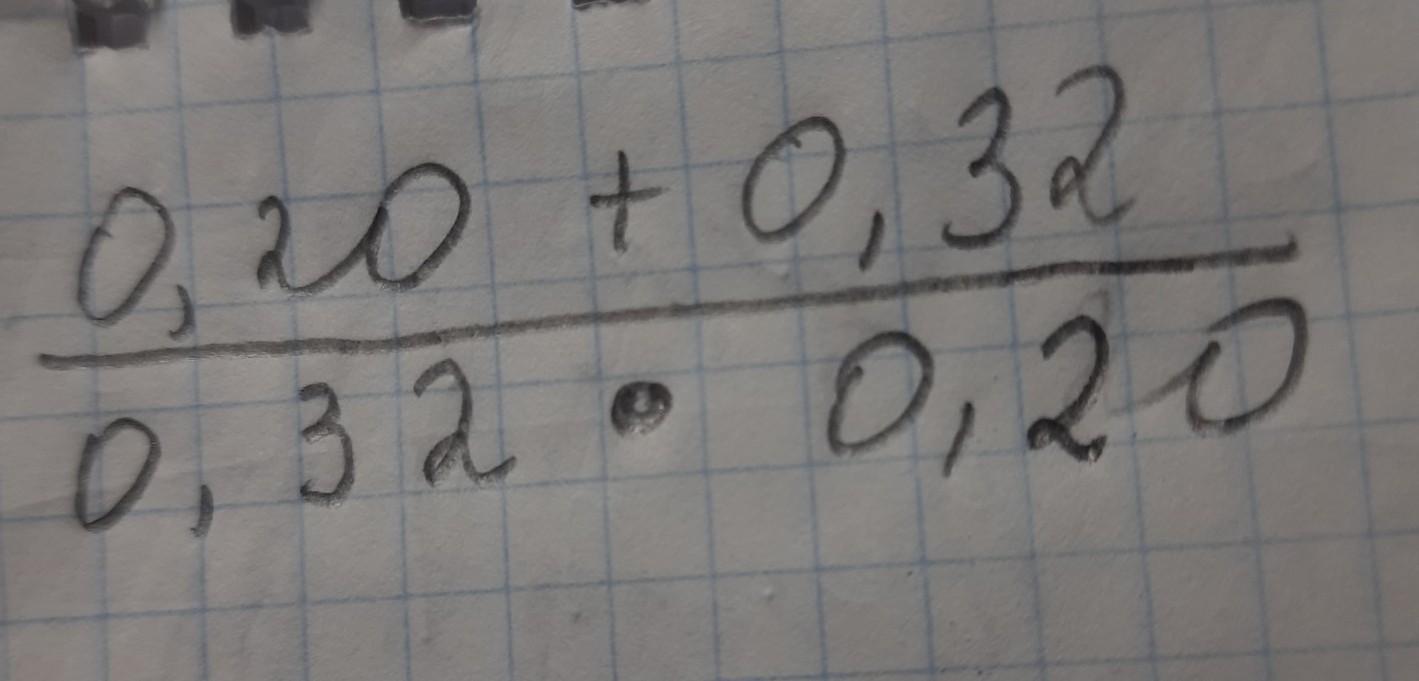 0,20 + 0,32
0,32 • 0,20